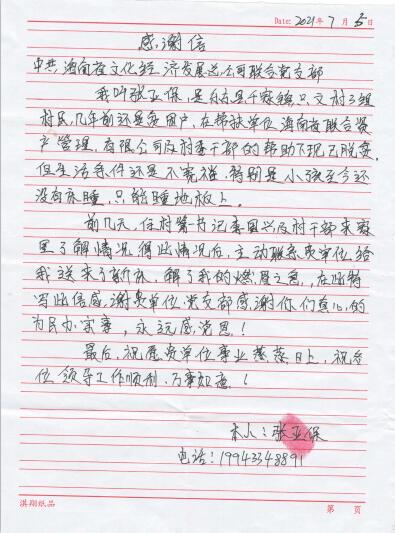 Date: 2021年7月5日
感谢信
中共海南省文化经济发展总公司联合党支部
我叫张亚保,是白沙县千家镇只文村3组
村民,几年前还是贫困户,在帮扶单位海南省联合资
产管理有限公司及村委干部的帮助下现已脱贫。
但生活条件还是不宽裕,特别是小孩至今还
没有床睡,只能睡地板上。
前几天,驻村第一书记李国兴及村干部来家
里了解情况,得此情况后,主动联系贵单位给
我送来了新床,解了我的燃眉之急,在此特
写此信感谢贵单位党支部感谢你们真心的
为民办实事,永远感党恩!
最后,祝愿贵单位事业蒸蒸日上,祝各
位领导工作顺利,万事如意!
本人:张亚保
电话:19943348891
淇翔纸品
第 页